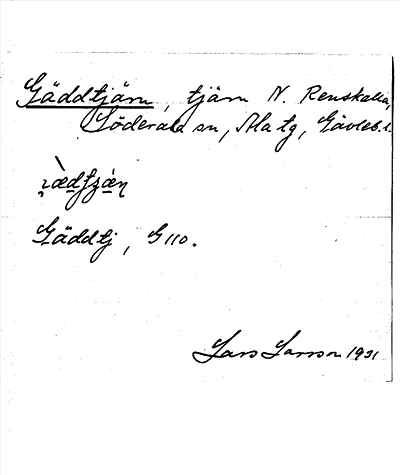 Gäddtjärn, tjärn N. Renskalla,
Söderala sn, Ala tg, Gävleb. l.
Gäddtj, G 110.
Lars Larsson 1931